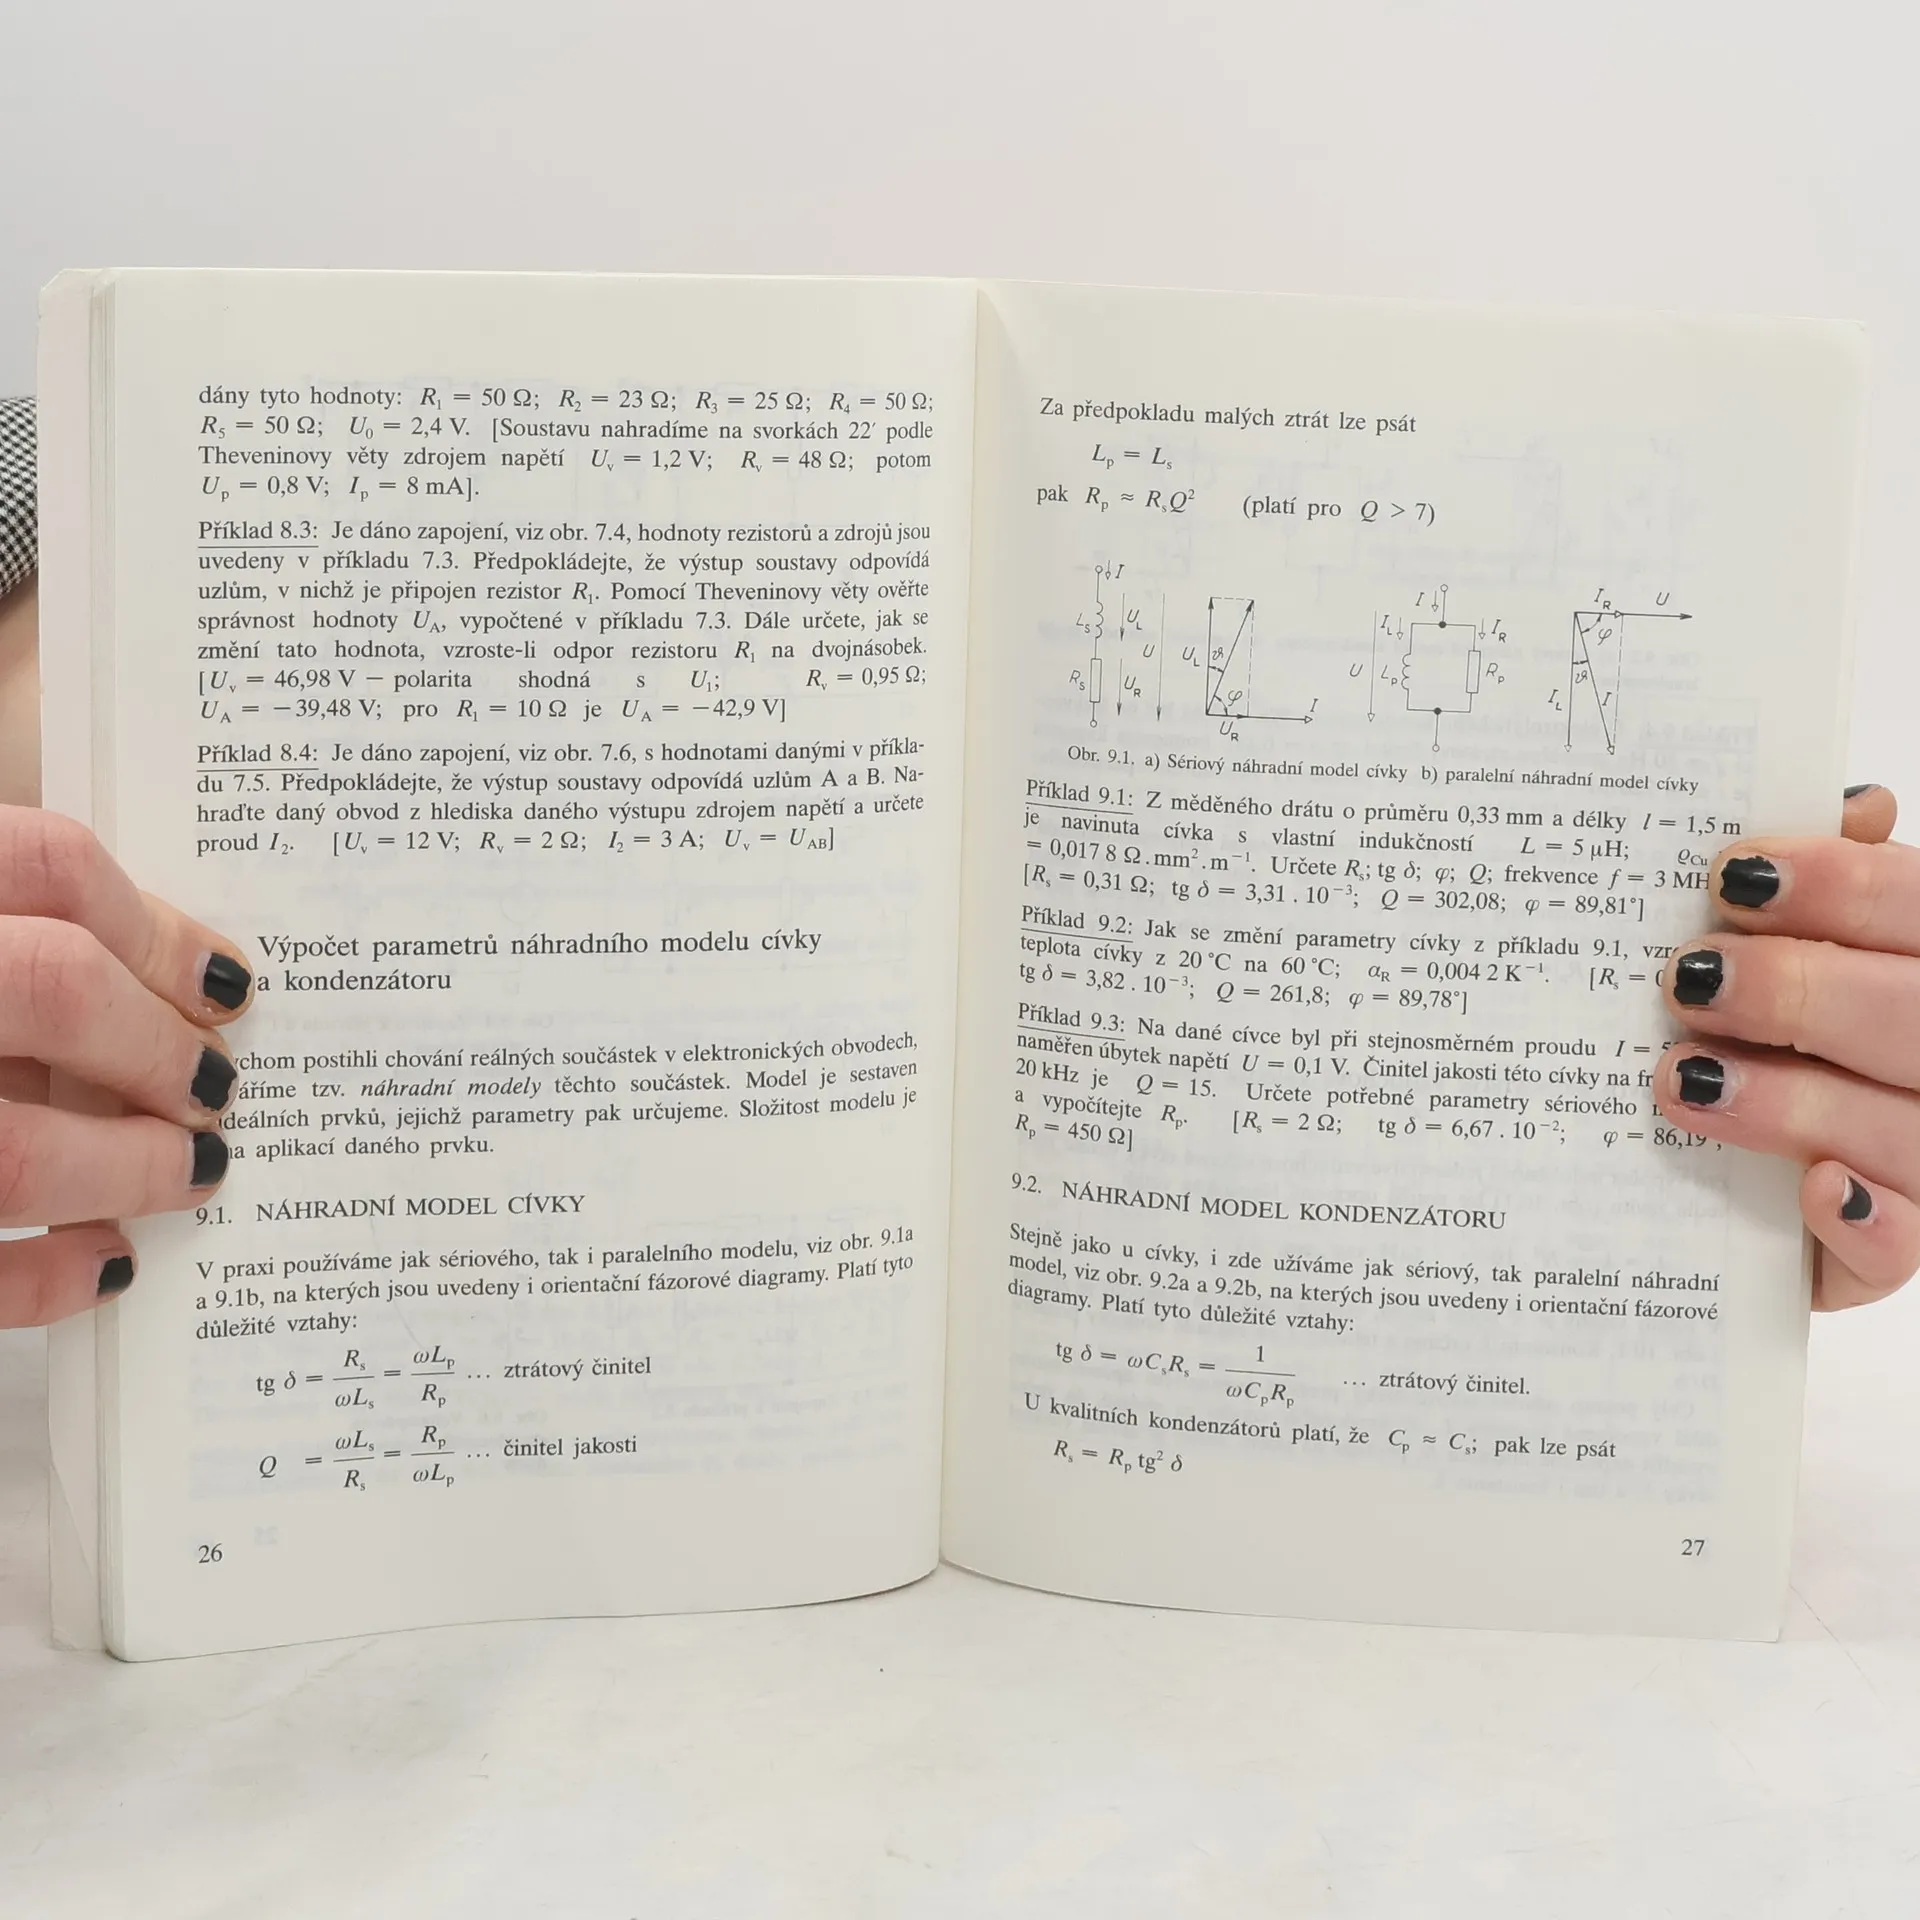 dány tyto hodnoty: R₁ = 50 Ω; R₂ = 23 Ω; R₃ = 25 Ω; R₄ = 50 Ω;
R₅ = 50 Ω; U₀ = 2,4 V. [Soustavu nahradíme na svorkách 22′ podle
Theveninovy věty zdrojem napětí Uᵥ = 1,2 V; Rᵥ = 48 Ω; potom
Uₚ = 0,8 V; Iₚ = 8 mA].
Příklad 8.3: Je dáno zapojení, viz obr. 7.4, hodnoty rezistorů a zdrojů jsou
uvedeny v příkladu 7.3. Předpokládejte, že výstup soustavy odpovídá
uzlům, v nichž je připojen rezistor R₁. Pomocí Theveninovy věty ověřte
správnost hodnoty U_A, vypočtené v příkladu 7.3. Dále určete, jak se
změní tato hodnota, vzroste-li odpor rezistoru R₁ na dvojnásobek.
[Uᵥ = 46,98 V — polarita shodná s U₁; Rᵥ = 0,95 Ω;
U_A = −39,48 V; pro R₁ = 10 Ω je U_A = −42,9 V]
Příklad 8.4: Je dáno zapojení, viz obr. 7.6, s hodnotami danými v příkla-
du 7.5. Předpokládejte, že výstup soustavy odpovídá uzlům A a B. Na-
hraďte daný obvod z hlediska daného výstupu zdrojem napětí a určete
proud I₂. [Uᵥ = 12 V; Rᵥ = 2 Ω; I₂ = 3 A; Uᵥ = U_AB]
Výpočet parametrů náhradního modelu cívky
a kondenzátoru
postihli chování reálných součástek v elektronických obvodech,
tzv. náhradní modely těchto součástek. Model je sestaven
prvků, jejichž parametry pak určujeme. Složitost modelu je
aplikací daného prvku.
9.1. NÁHRADNÍ MODEL CÍVKY
V praxi používáme jak sériového, tak i paralelního modelu, viz obr. 9.1a
a 9.1b, na kterých jsou uvedeny i orientační fázorové diagramy. Platí tyto
důležité vztahy:
tg δ = Rₛ/ωLₛ = ωLₚ/Rₚ … ztrátový činitel
Q = ωLₛ/Rₛ = Rₚ/ωLₚ … činitel jakosti
26
Za předpokladu malých ztrát lze psát
Lₚ = Lₛ
pak Rₚ ≈ RₛQ² (platí pro Q > 7)
I
Lₛ U_L U
Rₛ U_R
U_L ϑ φ U_R I
I
I_L I_R
U Lₚ Rₚ
I_R U
φ ϑ
I_L I
Obr. 9.1. a) Sériový náhradní model cívky b) paralelní náhradní model cívky
Příklad 9.1: Z měděného drátu o průměru 0,33 mm a délky l = 1,5 m
je navinuta cívka s vlastní indukčností L = 5 μH; ϱ_Cu
= 0,017 8 Ω.mm².m⁻¹. Určete Rₛ; tg δ; φ; Q; frekvence f = 3
[Rₛ = 0,31 Ω; tg δ = 3,31 . 10⁻³; Q = 302,08; φ = 89,81°]
Příklad 9.2: Jak se změní parametry cívky z příkladu 9.1,
teplota cívky z 20 °C na 60 °C; α_R = 0,004 2 K⁻¹. [Rₛ =
tg δ = 3,82 . 10⁻³; Q = 261,8; φ = 89,78°]
Příklad 9.3: Na dané cívce byl při stejnosměrném proudu I =
naměřen úbytek napětí U = 0,1 V. Činitel jakosti této cívky na
20 kHz je Q = 15. Určete potřebné parametry sériového
a vypočítejte Rₚ. [Rₛ = 2 Ω; tg δ = 6,67 . 10⁻²; φ = 86,19°;
Rₚ = 450 Ω]
9.2. NÁHRADNÍ MODEL KONDENZÁTORU
Stejně jako u cívky, i zde užíváme jak sériový, tak paralelní náhradní
model, viz obr. 9.2a a 9.2b, na kterých jsou uvedeny i orientační fázorové
diagramy. Platí tyto důležité vztahy:
tg δ = ωCₛRₛ = 1/ωCₚRₚ … ztrátový činitel.
U kvalitních kondenzátorů platí, že Cₚ ≈ Cₛ; pak lze psát
Rₛ = Rₚ tg² δ
27